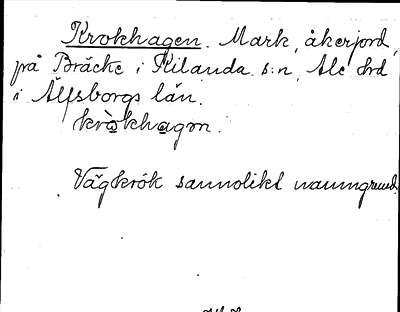 Krokhagen. Mark, åkerjord,
på Bräcke i Kilanda s:n, Ale hd
i Älfsborgs län.
krokhagən.
Vägkrök sannolikt namngrund.